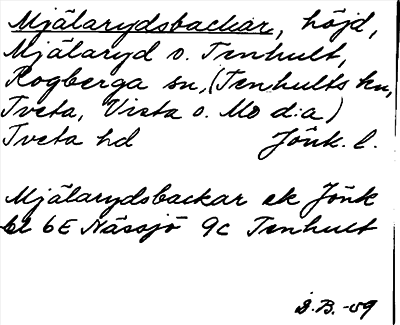 Mjälarydsbackar, höjd,
Mjälaryd o. Tenhult,
Rogberga sn, (Tenhults kn,
Tveta, Vista o. Mo d:a)
Tveta hd Jönk. l.
Mjälarydsbackar ek Jönk
bl 6E Nässjö 9c Tenhult
B.-59